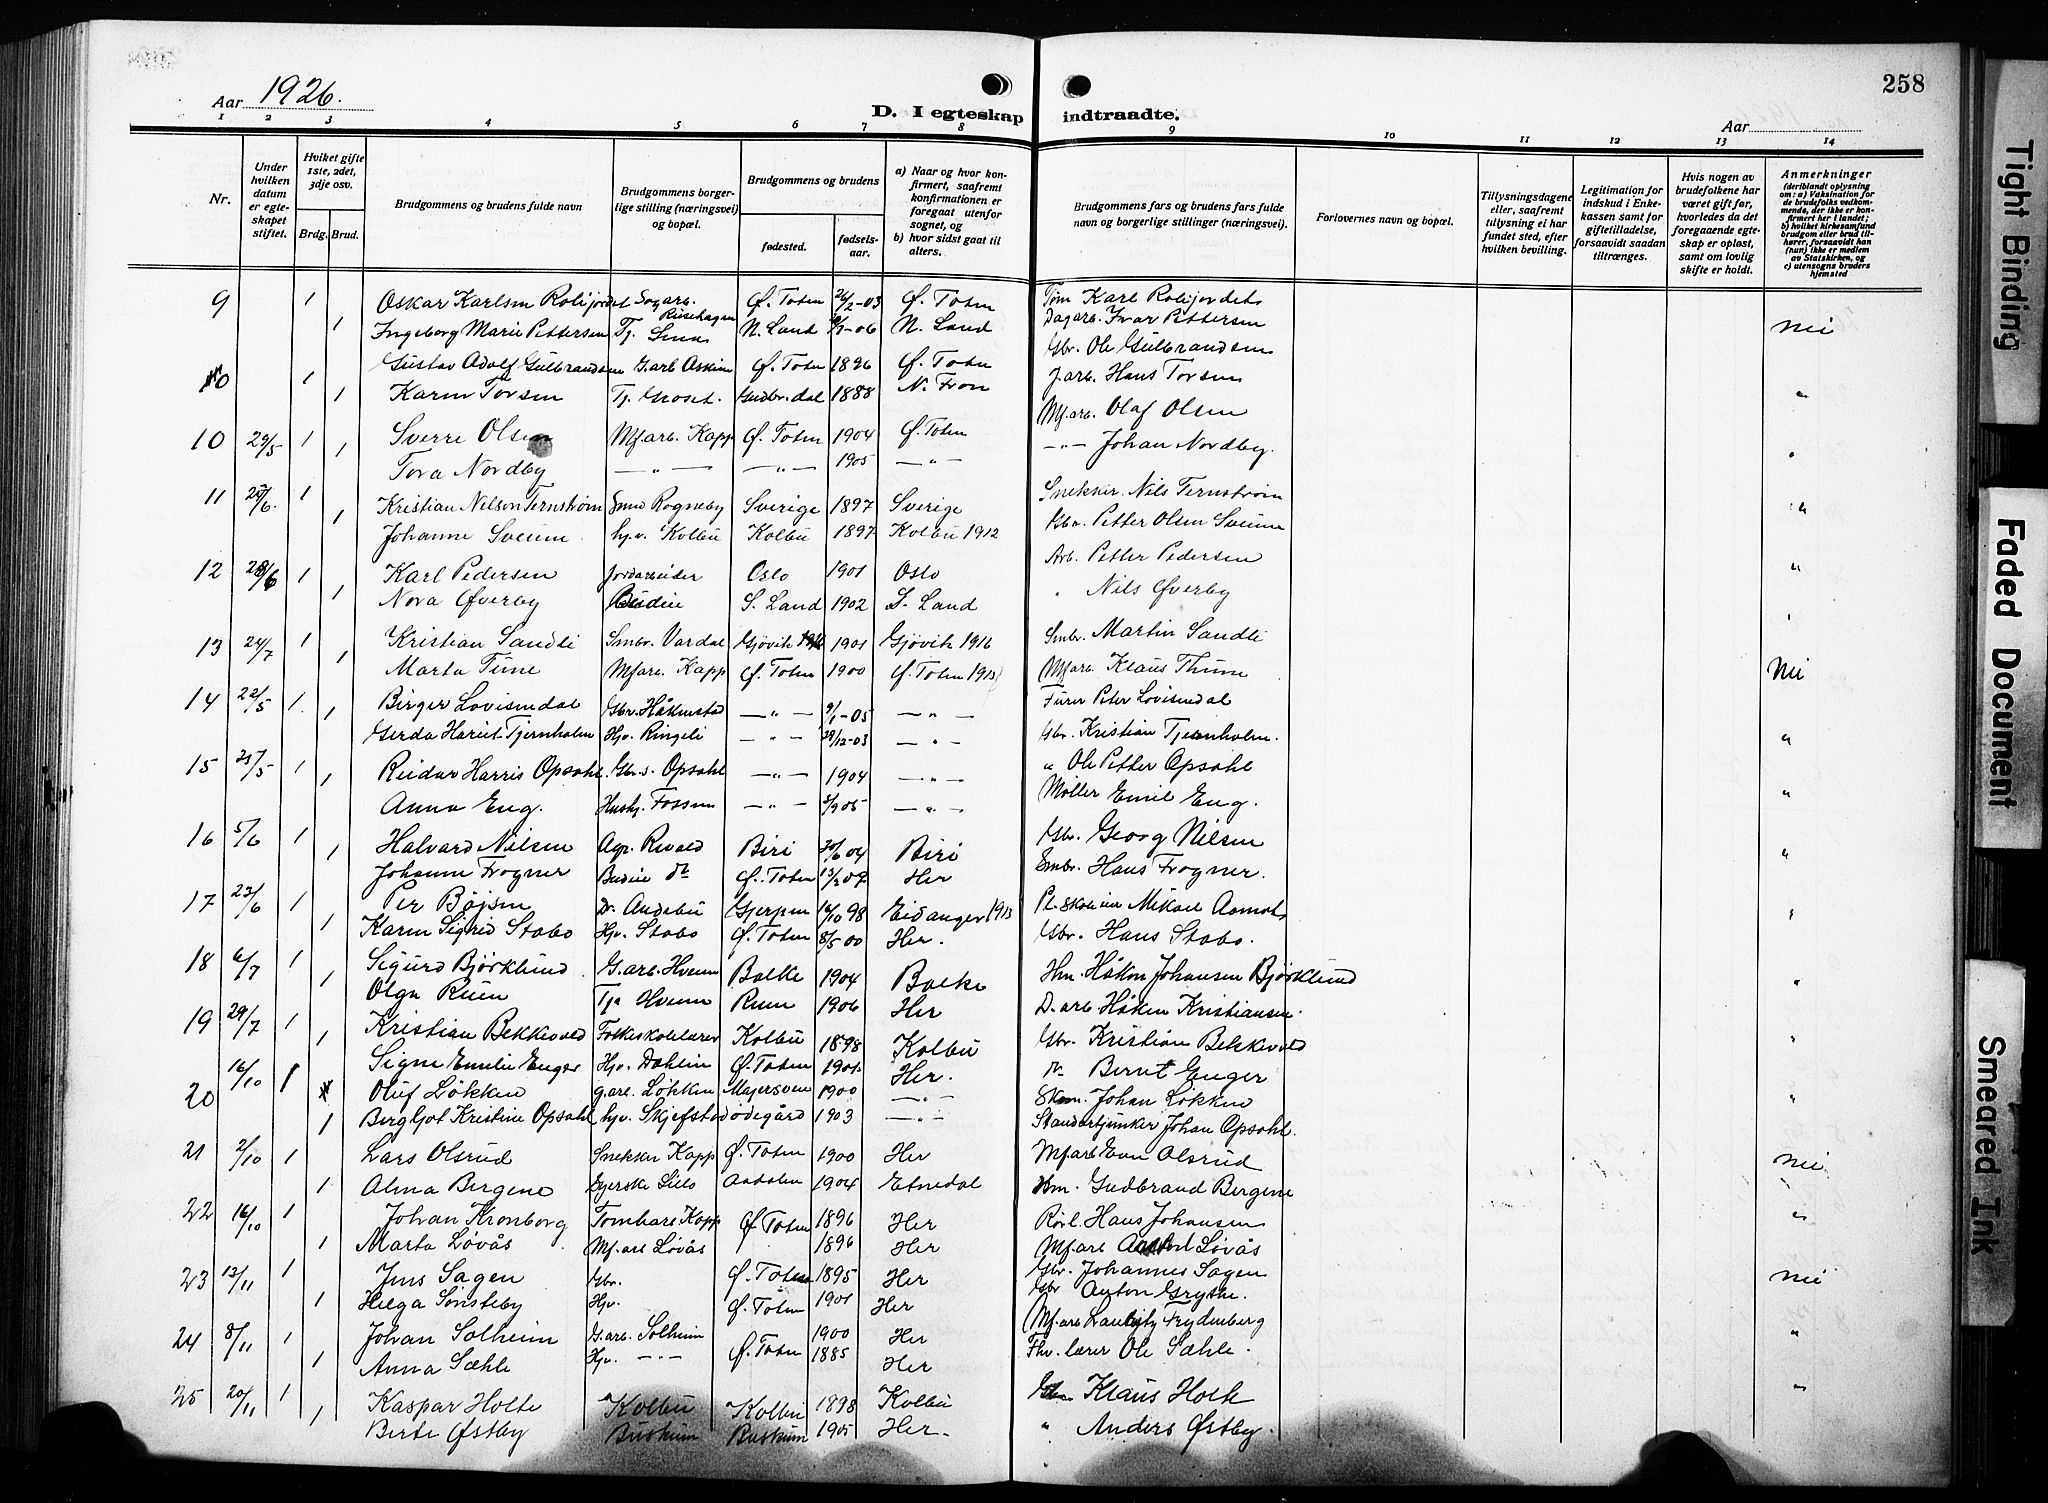 258
Aar 1926.
D. I egteskap indtraadte.
Aar
1 2 3 4 5 6 7 8 9 10 11 12 13 14
Nr.
Under hvilken datum er egteskapet stiftet.
Hviket gifte 1ste, 2det, 3dje osv.
Brdg. Brud.
Brudgommens og brudens fulde navn
Brudgommens borgerlige stilling (næringsvei) og bopæl.
Brudgommens og brudens
fødested.
fødselsaar.
a) Naar og hvor konfirmert, saafremt konfirmationen er foregaat utenfor sognet, og
b) hvor sidst gaat til alters.
Brudgommens fars og brudens fars fulde navn og borgerlige stillinger (næringsvei).
Forlovernes navn og bopæl.
Tillysningsdagene eller, saafremt tillysning ei har fundet sted, efter hvilken bevilling.
Legitimation for indskud i Enkekassen samt for giftetilladelse, forsaavidt saadan tiltrænges.
Hvis nogen av brudefolkene har været gift før, hvorledes da det foregaaende egteskap er opløst, samt om lovlig skifte er holdt.
Anmerkninger
(deriblandt oplysning om: a) Vaksination for de brudefolks vedkommende, der ikke er konfirmert her i landet; b) hvilket kirkesamfund brudgom eller brud tilhører, forsaavidt han (hun) ikke er medlem av Statskirken, og c) utensogns bruders hjemsted
9 1 Oskar Karlsen Rolijordet Ø. Toten 26/2-03 Ø. Toten Tøm Karl Rolijordet
1 Ingeborg Marie Pettersen Tj. N. Land N. Land Dagarb. Ivar Pettersen nei
1 Gustav Adolf Gulbrandsen G.arb Askim Ø. Toten 1896 Ø. Toten Gbr. Ole Gulbrandsen
1 Karen Torsen Tj. Gudbr.dal 1888 N. Fron J.arb. Hans Torsen "
10 29/5 1 Sverre Olsen Mf.arb. Kapp Ø. Toten 1904 Ø. Toten Mf.arb. Olaf Olsen
1 Tora Nordby — " — — " — 1905 — " — — " — Johan Nordby. "
11 1 Kristian Nilson Ternstrøm Smed Rogneby Sverige 1897 Sverige Snekker. Nils Ternstrøm
1 Johanne Sveum hj.v. Kolbu Kolbu 1897 Kolbu 1912 Gbr. Petter Olsen Sveum "
12 28/6 1 Karl Pedersen Jordarbeider Oslo 1901 Oslo Arb. Petter Pedersen
1 Nora Øverby Budeie S. Land 1902 S. Land " Nils Øverby "
13 24/7 1 Kristian Sandli Smbr. Vardal Gjøvik 1901 Gjøvik 1916 Smbr. Martin Sandli
1 Marta Tune Mfarb. Kapp Ø. Toten 1900 Ø. Toten 1915 Mfarb. Klaus Thune nei
14 22/5 1 Birger Lovisendal Gbr. Håkenstad — " — 9/1-05 — " — Furer Peter Lovisendal
1 Gerda Tjernholm Hjv. Ringeli — " — 29/12-03 — " — Gbr. Kristian Tjernholm. "
15 25/5 1 Reidar Harris Opsahl. Gbr.s. Opsahl — " — 1904 — " — " Ole Petter Opsahl
1 Anna Eng. Hushj. Fossum — " — — " — Møller Emil Eng. "
16 5/6 1 Halvard Nilsen Agr. Biri 30/6 04 Biri Gbr. Georg Nilsen
1 Johanne Frogner Budeie do Ø. Toten Her Smbr. Hans Frogner. "
17 23/6 1 Per Bøjsen Dr. Andebu Gjerpen 16/10 98 Eidanger 1913 Mikael Aamot
1 Karen Sigrid Stabo Hjv. Stabo Ø. Toten 8/5 00 Her. Gbr. Hans Stabo. "
18 6/7 1 Sigurd Bjørklund G.arb. Hveem Balke 1904 Balke Hm. Håkon Johansen Bjørklund
1 Olga Ruen Tje Hveem Ruen 1906 Her D.arb Håken Kristiansen. "
19 29/7 1 Kristian Bekkevold Folkeskolelærer Kolbu 1898 Kolbu Gbr. Kristian Bekkevold
1 Signe Emilie Enger Hjv. Dahlen Ø. Toten 1901 Her. Do Bernt Enger "
20 16/10 1 Oluf Løkken g.arb. Løkken Majersven 1900 — " — Skom. Johan Løkken
1 Bergljot Kristine Opsahl hjv. Skjefstad ødegård 1903 — " — Standartjunker Johan Opsahl. "
21 2/10 1 Lars Olsrud Snekker Kapp Ø. Toten 1900 Her Mfarb Even Olsrud
1 Alma Bergene Syerske Aadalen 1904 Etnedal Hm. Gudbrand Bergene nei
22 16/10 1 Johan Kronborg Kapp Ø. Toten 1896 Her Rørl. Hans Johansen
1 Marta Løvås Mf.arb Løvås 1896 Her Mf.arb Løvås "
23 13/11 1 Jens Sagen Gbr. Ø. Toten 1895 Her Gbr. Johannes Sagen
1 Helga Sønsteby Hjv. Ø. Toten 1901 Her Gbr Anton Grythe. nei
24 8/11 1 Johan Solheim G.arb. Solheim Ø. Toten 1900 Her Mf.arb Frydenberg
1 Anna Sæhle Hjv. — " — 1885 Her Fhv. lærer Ole Sæhle. "
25 20/11 1 Kaspar Holte Kolbu Kolbu 1898 Kolbu Gbr. Klaus Holte
1 Berte Østby Buskum Buskum 1905 Her. " Anders Østby. "
Tight Binding
Faded Document
Smeared Ink